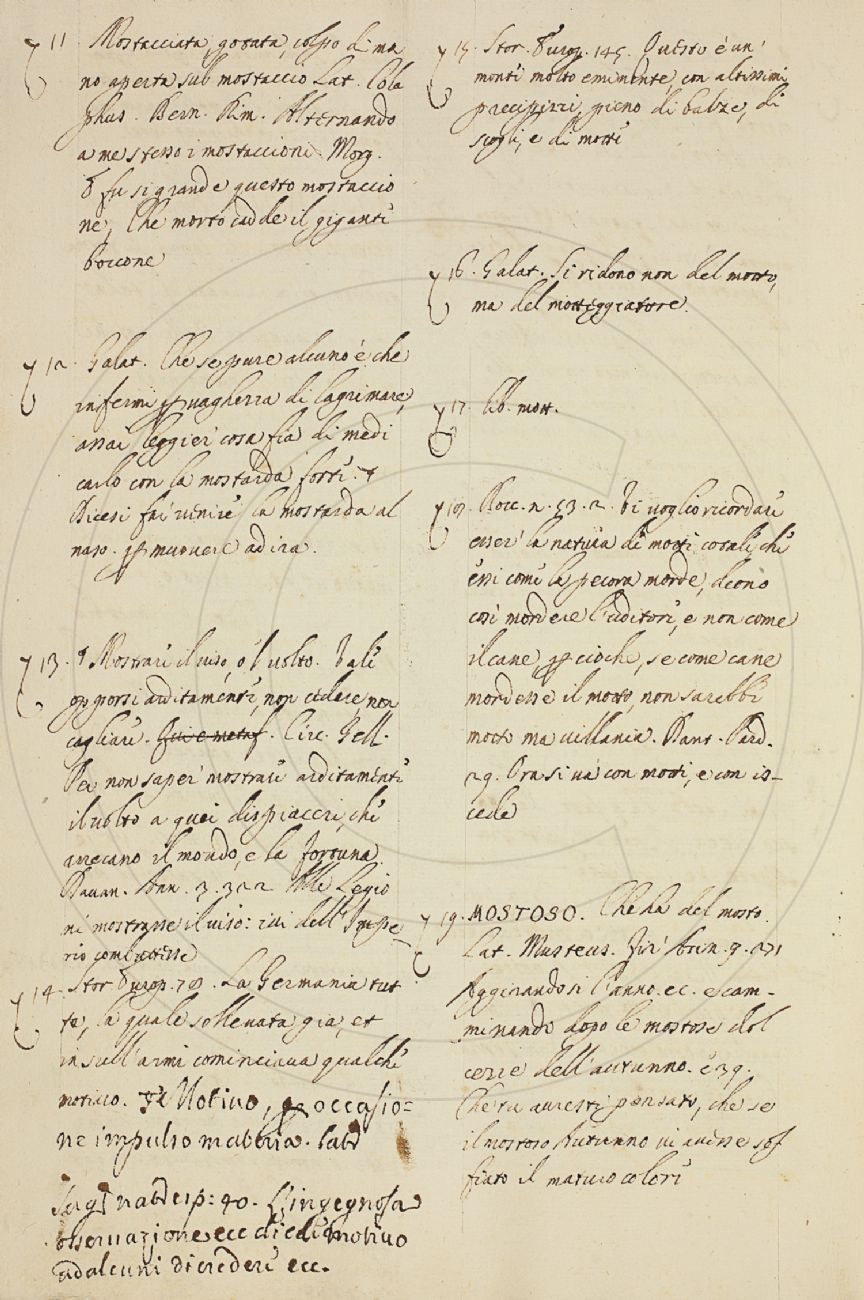 11. Mostacciata, gotata, colpo di ma
no aperta sul mostaccio Lat. Cola
phus. Bern. Rim. Alternando
a me stesso i mostaccioni. Morg.
E fu si grande questo mostaccio
ne, Che morto cadde il giganti
boccone
12. Galat. Che se pure alcuno è che
infermi vaghezza di lagrimare,
assai leggieri cosa fia di medi
carlo con la mostarda forti. +
Dicesi far venire la mostarda al
naso. muovere ad ira.
13. + Mostrari il viso, o 'l volto.
opporsi arditamenti, non cedere, non
cagliari. Circ. Gell.
Per non saper mostrari arditamenti
il volto a quei dispiaceri, chi
arrecano il mondo, e la fortuna.
Davan. Ann. 3. 322 Alle Legio
ni mostrasse il viso: ivi dell'Impe
rio combattesse
14. Stor Europ. 70. La Germania tut
ta, la quale sollevata gia, et
in sull'armi cominciava qualchi
motivo. Motivo, occasio=
ne impulso materia.
Sagg nat esp: 40. L'ingegnosa
osservazione ecc diedi motivo
ad alcuni di crederi ecc.
15. Stor. Europ. 145. Questo è un'
monti molto eminente, con altissimi
precipizi, pieno di balze, di
scogli, e di motti
16. Galat. Si ridono non del motto,
ma del motteggiatore.
17. Lib. mott.
18. Bocc. n. 53. 2. Vi voglio ricordari
esser la natura de motti cotali, chi
essi come la pecora morde, deono
cosi mordere l'uditori, e non come
il cane cioche, se come cane
mordesse il motto, non sarebbi
motto ma villania. Dant. Pard.
29. Ora si va con motti, e con is-
cede
19. MOSTOSO. Che ha del mosto.
Lat. Musteus. Fir. Asin. 9. 271
Aggirandosi l'anno. ec. e cam-
minando dopo le mostose dol
cezze dell'autunno. E 39.
Che tu avresti pensato, che se
il mostoso Autunno vi avesse sof
fiato il maturo colori